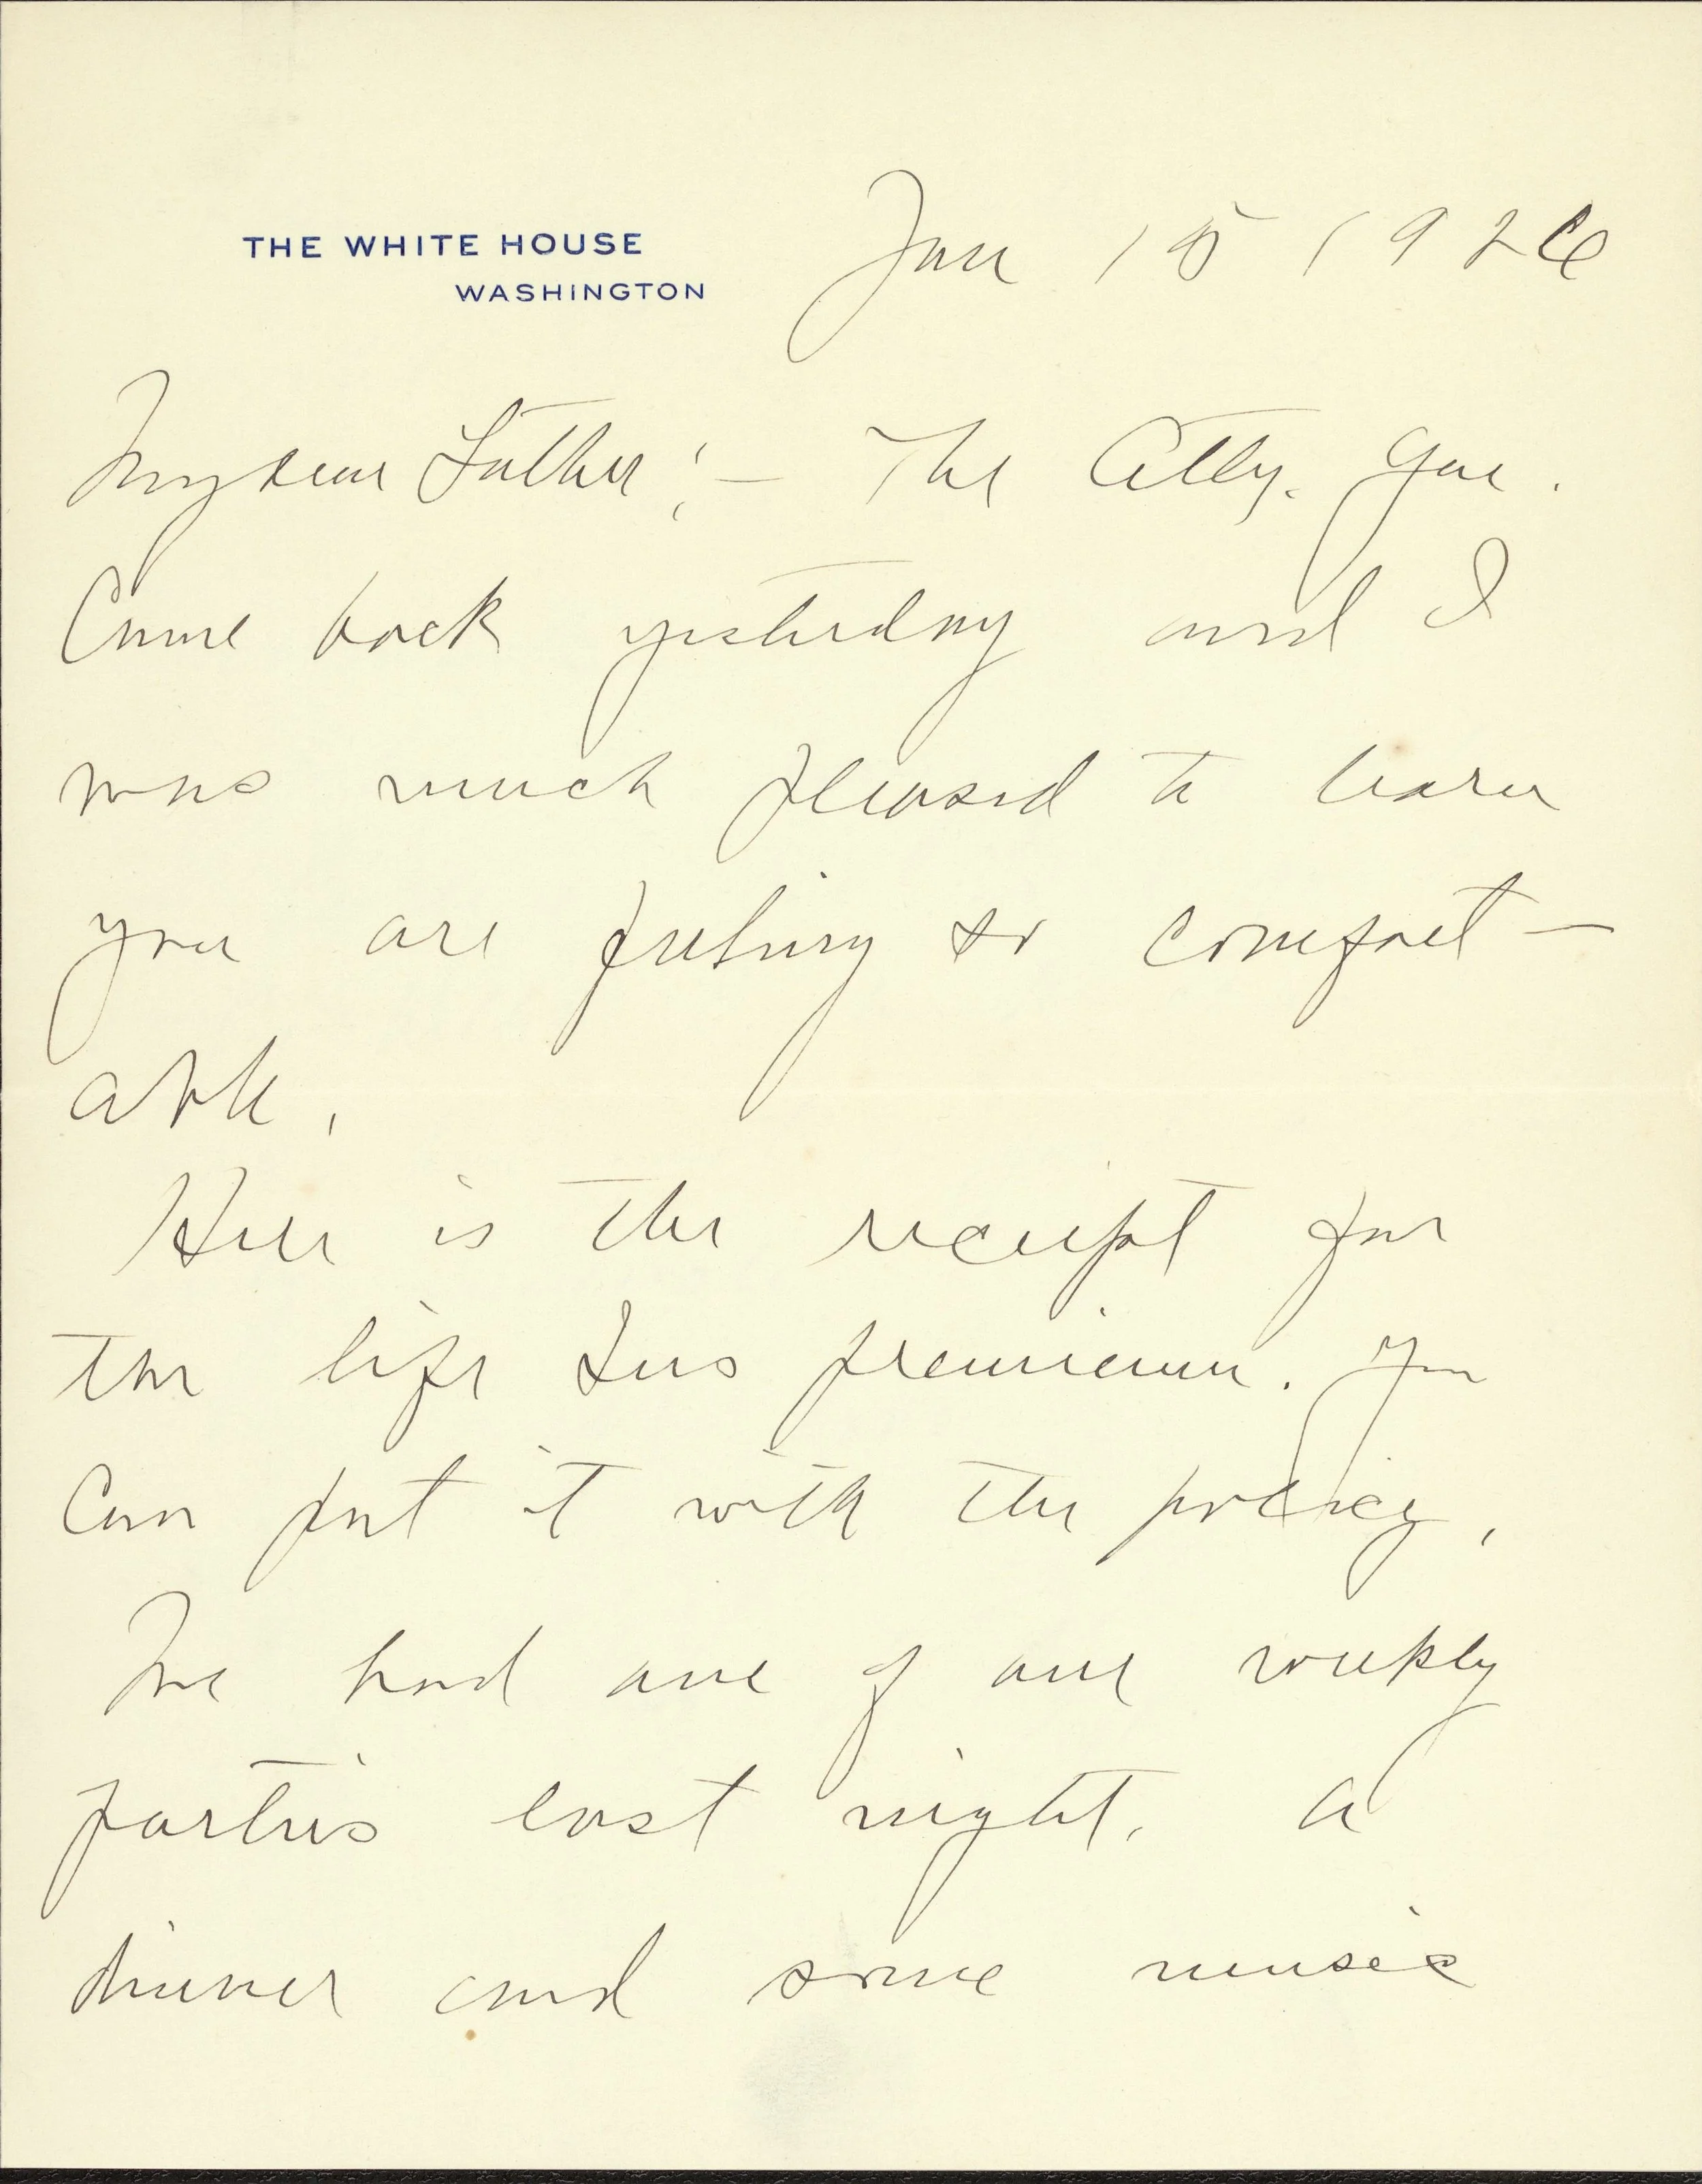 THE WHITE HOUSE
WASHINGTON
Jan 15 1926
My dear Father:— The Atty. Gen.
Came back yesterday and I
was much pleased to learn
you are feeling so comfort—
able.
Here is the receipt for
the life Ins premium. You
Can put it with the policy.
We had one of our weekly
parties last night. A
dinner and some music